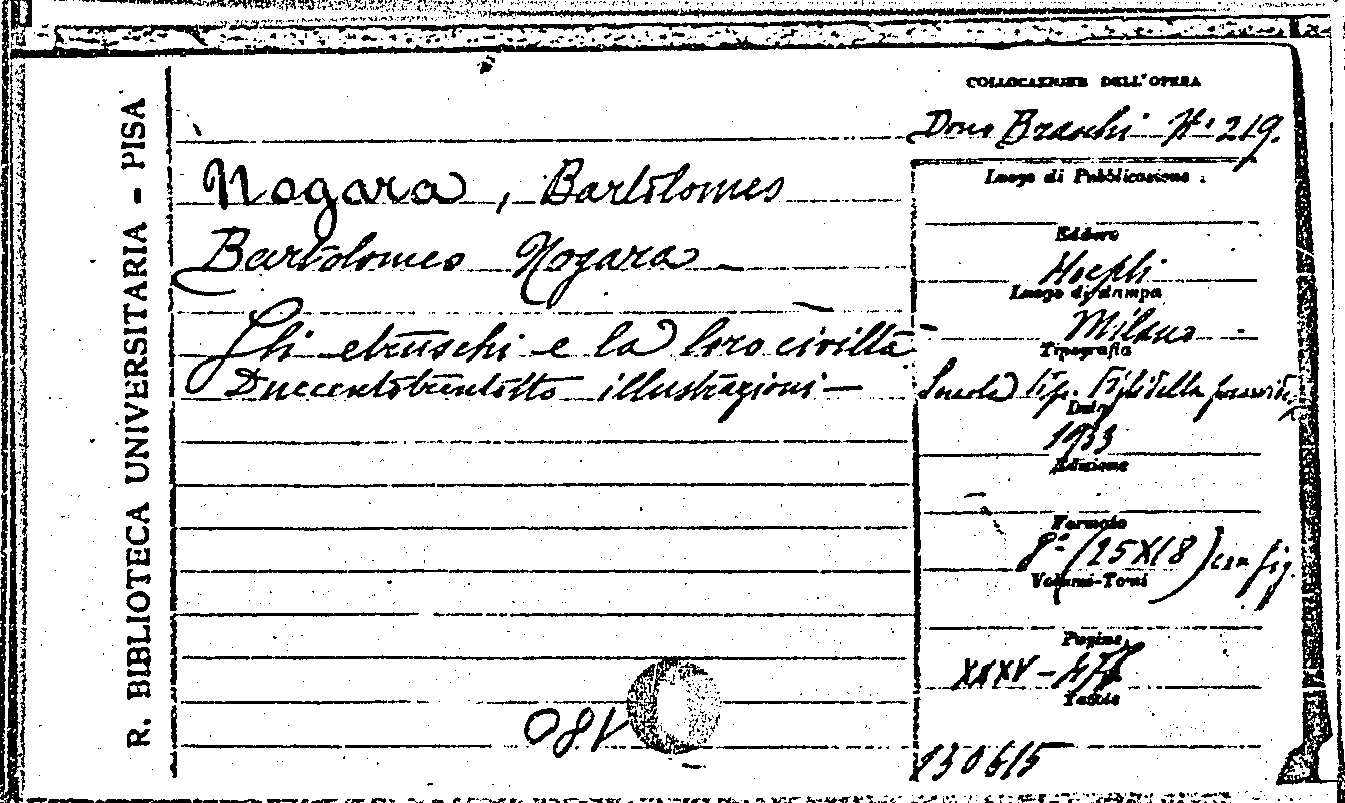 R. BIBLIOTECA UNIVERSITARIA - PISA
COLLOCAZIONE DELL'OPERA
Dono Braschi N. 219.
Nogara, Bartolomeo
Bartolomeo Nogara
Gli etruschi e la loro civiltà
Duecentotrentotto illustrazioni
Luogo di Pubblicazione
Editore
Hoepli
Luogo di stampa
Milano
Tipografia
Scuola Tip. Figli della
Data
1933
Edizione
Formato
8° (25X18) con fig.
Volumi-Tomi
Pagine
XXXV -
Tavole
130615
180